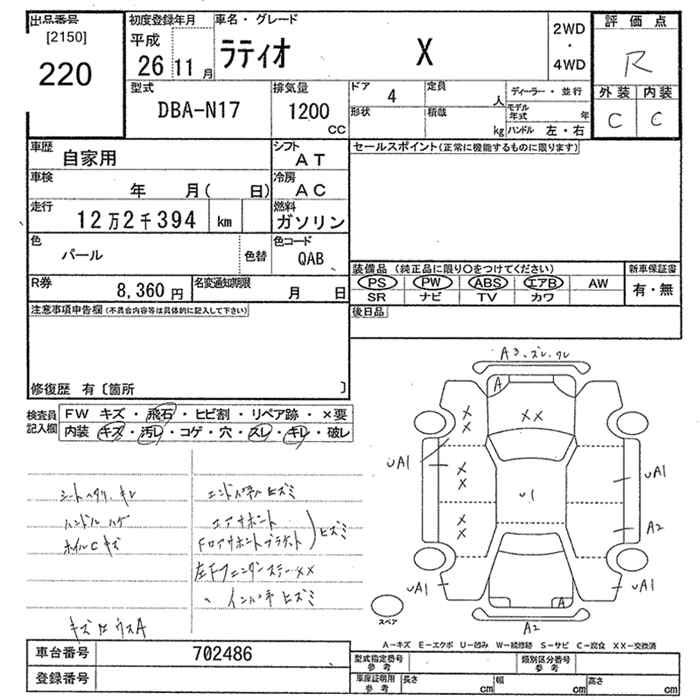 出品番号
[2150]
220
初度登録年月
平成
26 11 月
車名・グレード
ラティオ X
2WD
・
4WD
評価点
R
外装 内装
C C
型式
DBA-N17
排気量
1200
CC
ドア
4
定員
人
形状
積載
kg
ディーラー・並行
モデル年式 年
ハンドル 左・右
車歴
自家用
シフト
AT
車検
年 月( 日)
冷房
AC
走行
12万2千394 km
燃料
ガソリン
色
パール
色替
色コード
QAB
R券
8,360 円
名変通知期限
月 日
セールスポイント(正常に機能するものに限ります)
装備品(純正品に限り○をつけてください)
新車保証書
PS PW ABS エアB AW
SR ナビ TV カワ
有・無
後日品
注意事項申告欄(不具合内容等は具体的に記入して下さい)
修復歴 有〔箇所 〕
検査員記入欄
FW キズ・飛石・ヒビ割・リペア跡・×要
内装 キズ・汚レ・コゲ・穴・スレ・キレ・破レ
シートヘタリ、キレ
ハンドル ハゲ
ホイルC キズ
エアサポート
Fロアサポートブラケット
ヒズミ
左Fフェンダーステー××
インパネ ヒズミ
A3、ズレ、ワレ
A
××
×
×
×
×
×
×
UA1
UA1
U1
A2
UA1
UA1
A
A2
スペア
A-キズ E-エクボ U-凹み W-補修跡 S-サビ C-腐食 XX-交換済
車台番号
702486
登録番号
型式指定番号
参考
類別区分番号
参考
車庫証明用
参考
長さ cm
幅 cm
高さ cm